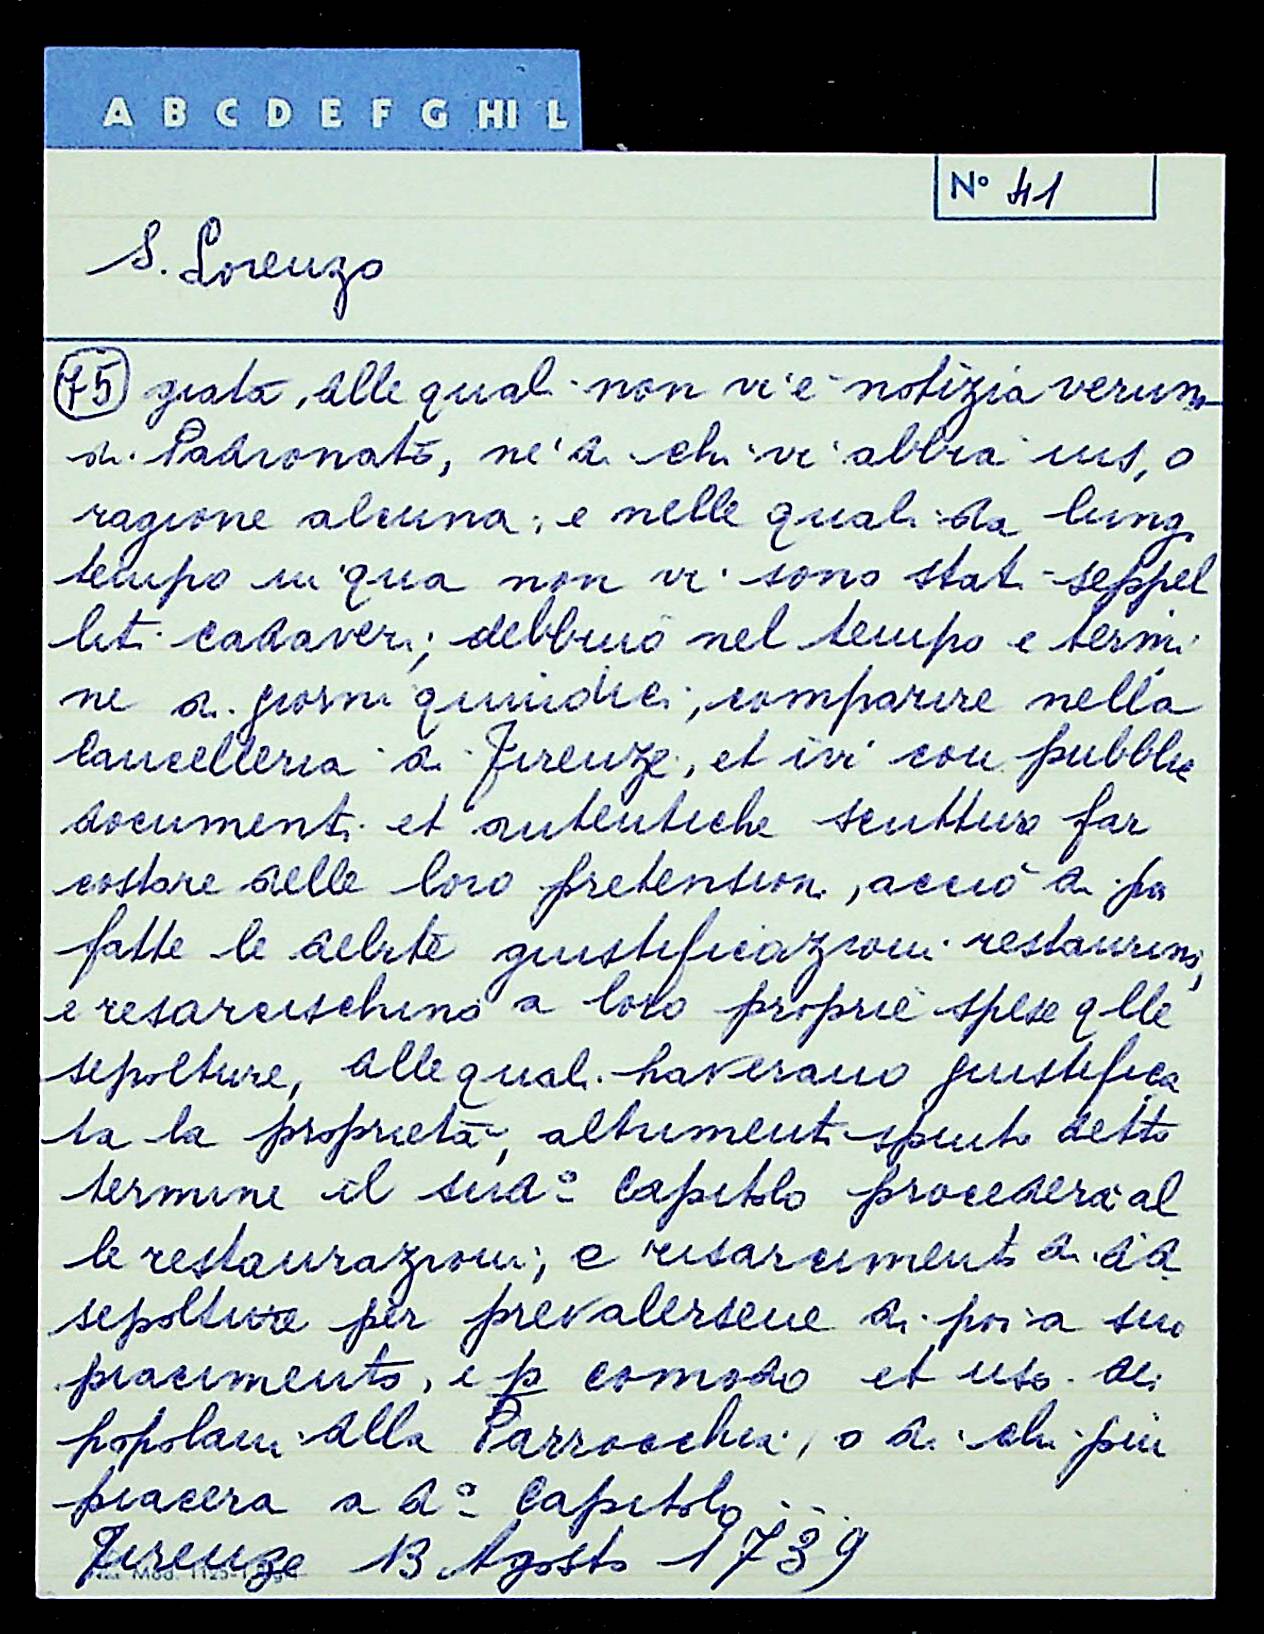 A B C D E F G HI L
Nº 41
S. Lorenzo
75 giata, alle quali non vi è notizia veruna
di Padronato, ne di chi vi abbia ius, o
ragione alcuna; e nelle quali da lung.
tempo in qua non vi sono stati seppel
liti cadaveri; debbino nel tempo e termi
ne di giorni quindici, comparire nella
Cancelleria di Firenze, et ivi con pubblic
documenti et autentiche scritture far
costare delle loro pretensioni, acciò di poi
fatte le debite giustificazioni restaurino,
e resarcischino a loro proprie spese qlle
sepolture, alle quali haverano giustifica
ta la proprietà, altrimenti spirito detto
termine il sudº Capitolo procederà al
le restaurazioni; e risarcimento di dd
sepolture per prevalersene di poi a suo
piacimento, e p comodo et uso dei
popolani alla Parrocchia, o di chi più
piacera a dº Capitolo
Firenze 13 Agosto 1739